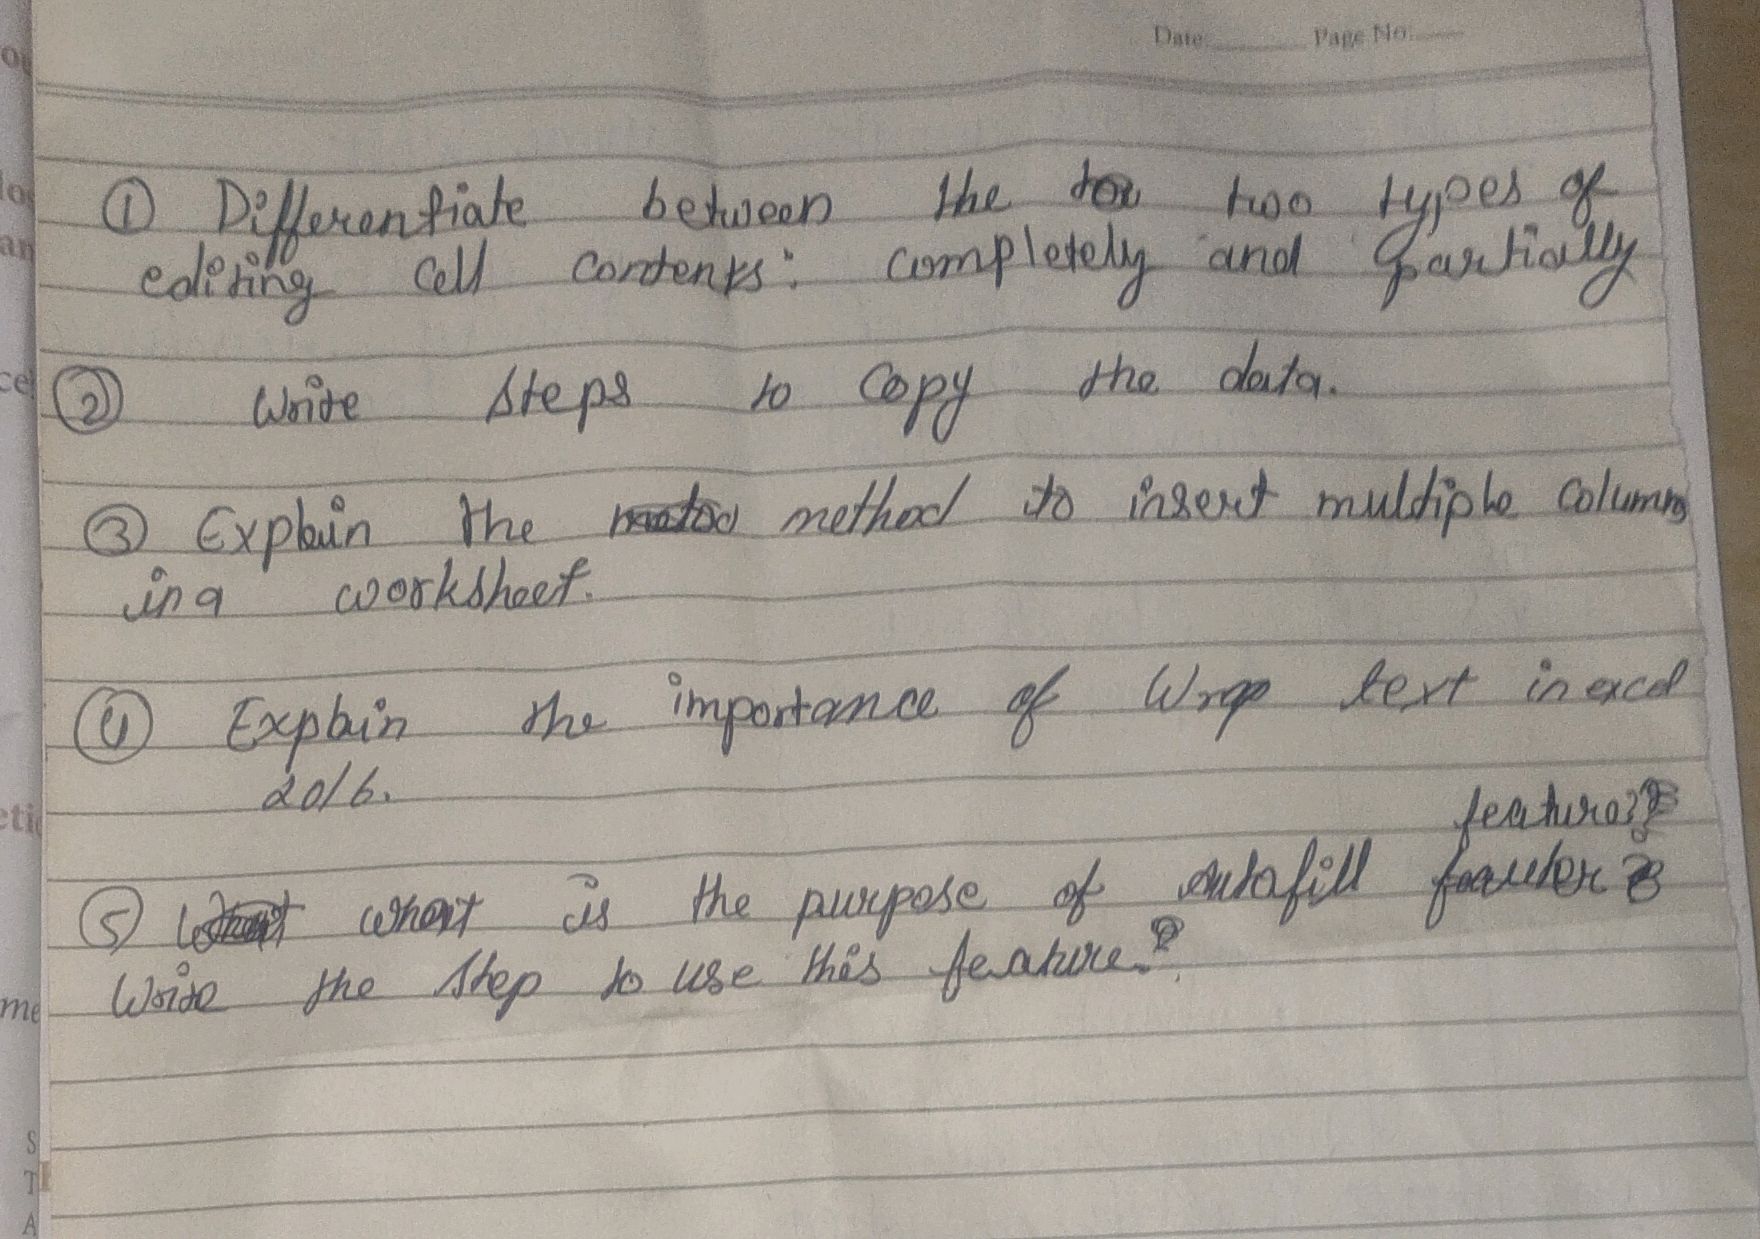 Date: Page No:
① Differentiate between the two types of
editing cell contents: completely and partially
② Write steps to copy the data.
③ Explain the method to insert multiple columns
in a worksheet.
④ Explain the importance of Wrap text in excel
2016.
feature?
⑤ what is the purpose of autofill
Write the step to use this feature.?
ce
eti
me
S
T
A